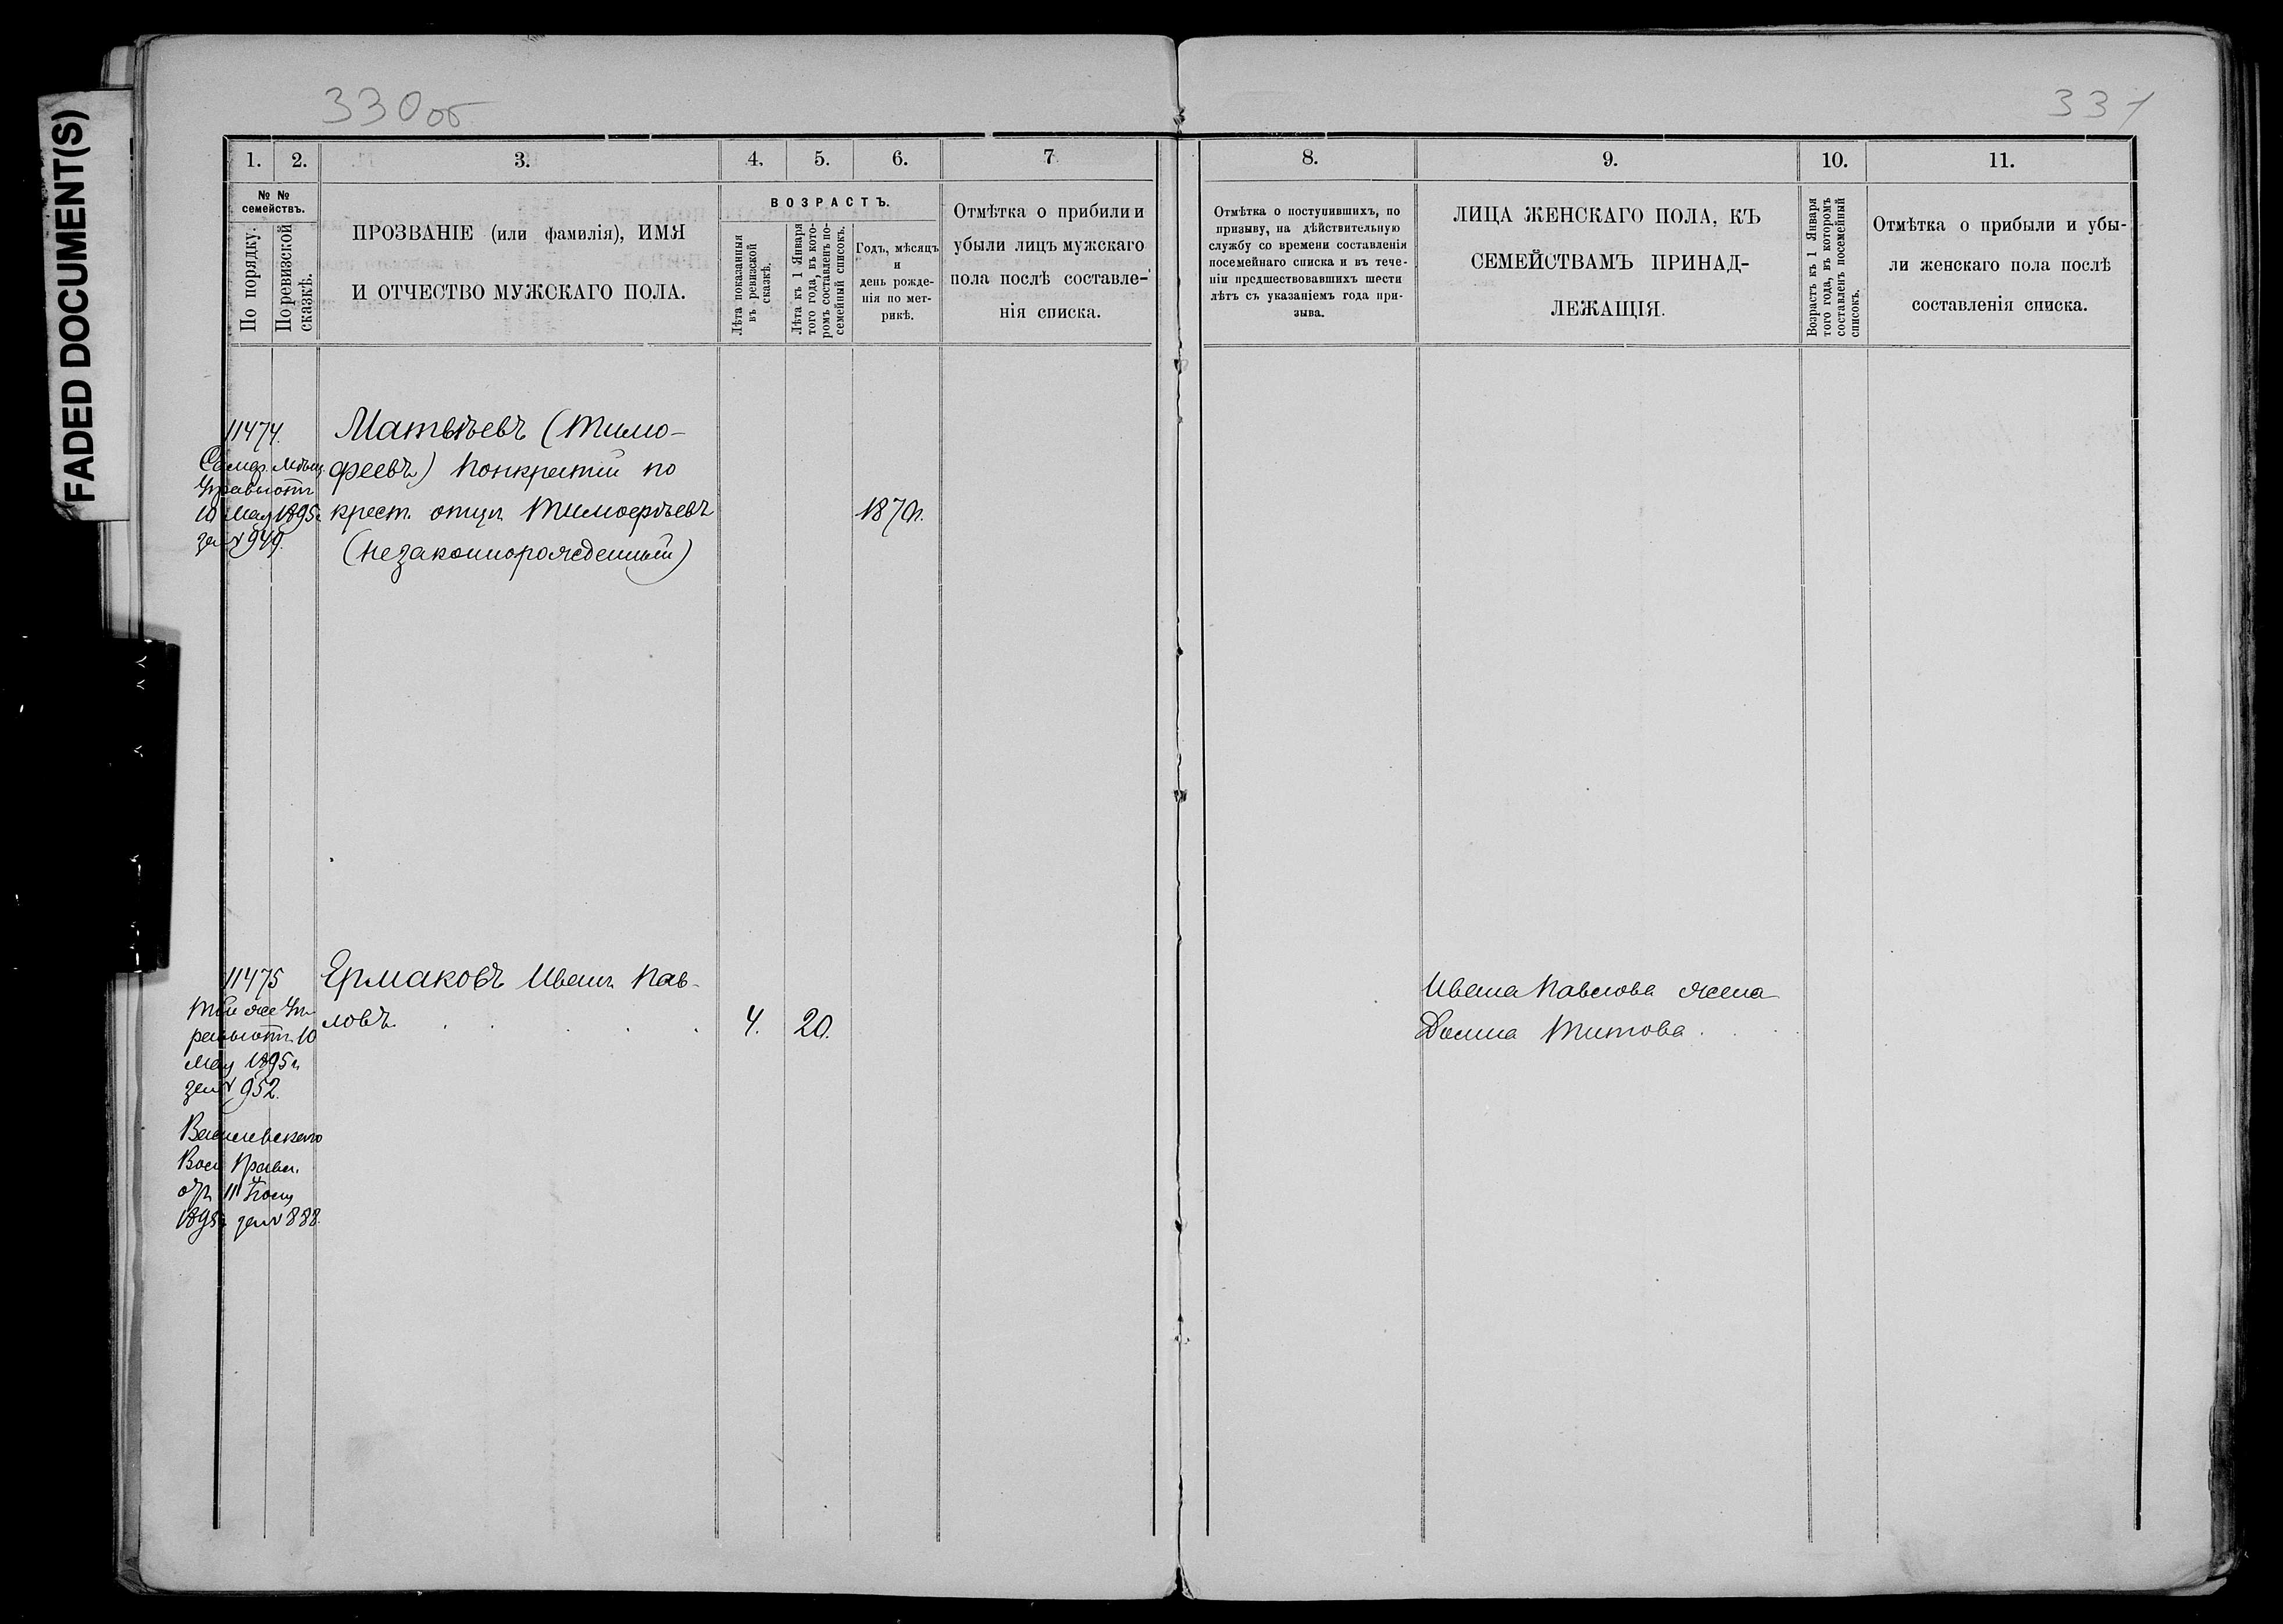 FADED DOCUMENT(S)
330об
331
1.
2.
3.
4.
5.
6.
7
8.
9.
10.
11.
№ №
семействъ.
По порядку.
По ревизской
сказкѣ.
ПРОЗВАНІЕ (или фамилія), ИМЯ
И ОТЧЕСТВО МУЖСКАГО ПОЛА.
ВОЗРАСТЪ.
Лѣта показанныя
въ ревизской
сказкѣ.
Лѣта къ 1 Января
того года, въ кото-
ромъ составленъ по-
семейный списокъ.
Годъ, мѣсяцъ
и
день рожде-
нія по мет-
рикѣ.
Отмѣтка о прибыли и
убыли лицъ мужскаго
пола послѣ составле-
нія списка.
Отмѣтка о поступившихъ, по
призыву, на дѣйствительную
службу со времени составленія
посемейнаго списка и въ тече-
ніи предшествовавшихъ шести
лѣтъ съ указаніемъ года при-
зыва.
ЛИЦА ЖЕНСКАГО ПОЛА, КЪ
СЕМЕЙСТВАМЪ ПРИНАД-
ЛЕЖАЩІЯ.
Возрастъ къ 1 Января
того года, въ которомъ
составленъ посемейный
списокъ.
Отмѣтка о прибыли и убы-
ли женскаго пола послѣ
составленія списка.
11474.
Самар. Мѣщ.
Управы отъ
10 Мая 1895г.
за № 949.
Матвѣевъ (Тимо-
феевъ) Понкратій по
крест. отцу Тимофѣевъ
(незаконнорожденный)
1870г.
11475
Той же Уп-
равы отъ 10
Мая 1895г.
за № 952.
Василевскаго
Вол. Правл.
отъ 11
1895г. за № 888.
Ермаковъ Иванъ Пав-
ловъ
4.
20.
Ивана Павлова жена
Домна Титова